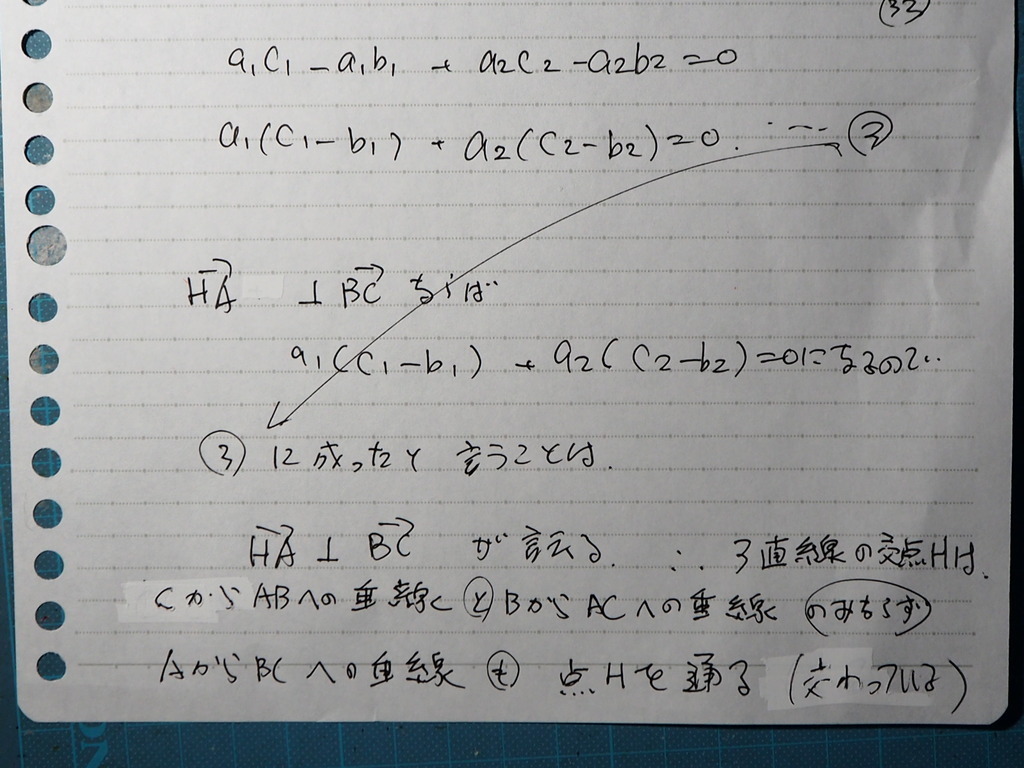 (32)
a₁c₁ - a₁b₁ + a₂c₂ - a₂b₂ = 0
a₁(c₁ - b₁) + a₂(c₂ - b₂) = 0. ... ③
HA→ ⊥ BC→ ならば
a₁(c₁ - b₁) + a₂(c₂ - b₂) = 0になるので..
③ に成ったと 言うことは.
HA→ ⊥ BC→ が 言える. ∴ 3直線の交点Hは.
CからABへの垂線 と BからACへの垂線 のみならず
AからBCへの垂線 も 点Hを通る (交わっている)